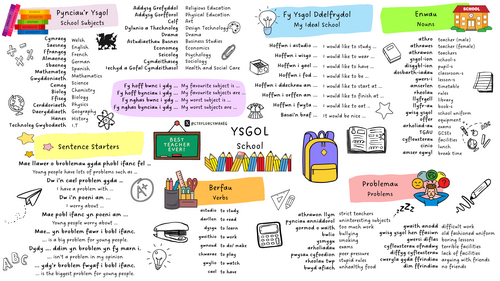 Pynciau'r Ysgol
School Subjects
Cymraeg Welsh
Saesneg English
Ffrangeg French
Almaeneg German
Sbaeneg Spanish
Mathemateg Mathematics
Gwyddoniaeth Science
Cemeg Chemistry
Bioleg Biology
Ffiseg Physics
Cerddoriaeth Geography
Daearyddiaeth Geography
Hanes History
Technoleg Gwybodaeth I.T
Addysg Grefyddol Religious Education
Addysg Gorfforol Physical Education
Celf Art
Dylunio a Thechnoleg Design Technology
Drama Drama
Astudiaethau Busnes Business Studies
Economeg Economics
Seicoleg Psychology
Cymdeithaseg Sociology
Iechyd a Gofal Cymdeithasol Health and Social Care
Fy hoff bwnc i ydy ... My favourite subject is ...
Fy hoff bynciau i ydy ... My favourite subjects are ...
Fy nghas bwnc i ydy ... My worst subject is ...
Fy nghas bynciau i ydy ... My worst subjects are ...
Fy Ysgol Ddelfrydol
My Ideal School
Hoffwn i astudio ... I would like to study ...
Hoffwn i wisgo ... I would like to wear ...
Hoffwn i gael ... I would like to have ...
Hoffwn i fod ... I would like to be ...
Hoffwn i ddechrau am ... I would like to start at ...
Hoffwn i orffen am ... I would like to finish at ...
Hoffwn i fwyta ... I would like to eat ...
Basai'n braf ... It would be nice ...
Enwau
Nouns
athro teacher (male)
athrawes teacher (female)
ysgol-ion school-s
disgybl-ion pupil-s
dosbarth-iadau classroom-s
gwers-i lesson-s
amserlen timetable
rheol-au rule-s
llyfrgell library
llyfr-au book-s
gwisg ysgol school uniform
offer equipment
arholiad-au exam-s
TGAU GCSEs
cyfleusterau facilities
cinio lunch
amser egwyl break time
Sentence Starters
Mae llawer o broblemau gyda phobl ifanc fel ...
Young people have lots of problems such as ...
Dw i'n cael problem gyda ...
I have a problem with ...
Dw i'n poeni am ...
I worry about ...
Mae pobl ifanc yn poeni am ...
Young people worry about ...
Mae... yn broblem fawr i bobl ifanc.
... is a big problem for young people.
Dydy ... ddim yn broblem yn fy marn i.
... isn't a problem in my opinion
... ydy'r broblem fwyaf i bobl ifanc.
... is the biggest problem for young people.
BEST TEACHER EVER!
YSGOL
School
Berfau
Verbs
astudio to study
darllen to read
dysgu to learn
gweithio to work
gwneud to do/ make
chwarae to play
gwylio to watch
cael to have
Problemau
Problems
athrawon llym strict teachers
pynciau anniddorol uninteresting subjects
gormod o waith too much work
bwlio bullying
ysmygu smoking
arholiadau exams
pwysau cyfoedion peer pressure
rheolau twp stupid rules
bwyd afiach unhealthy food
gwaith anodd difficult work
gwisg ysgol hen ffasiwn old fashioned uniform
gwersi diflas boring lessons
cyfleusterau ofnadwy terrible facilities
diffyg cyfleusterau lack of facilities
cweryla gyda ffrindiau arguing with friends
dim ffrindiau no friends
zZZ
A+
ABC